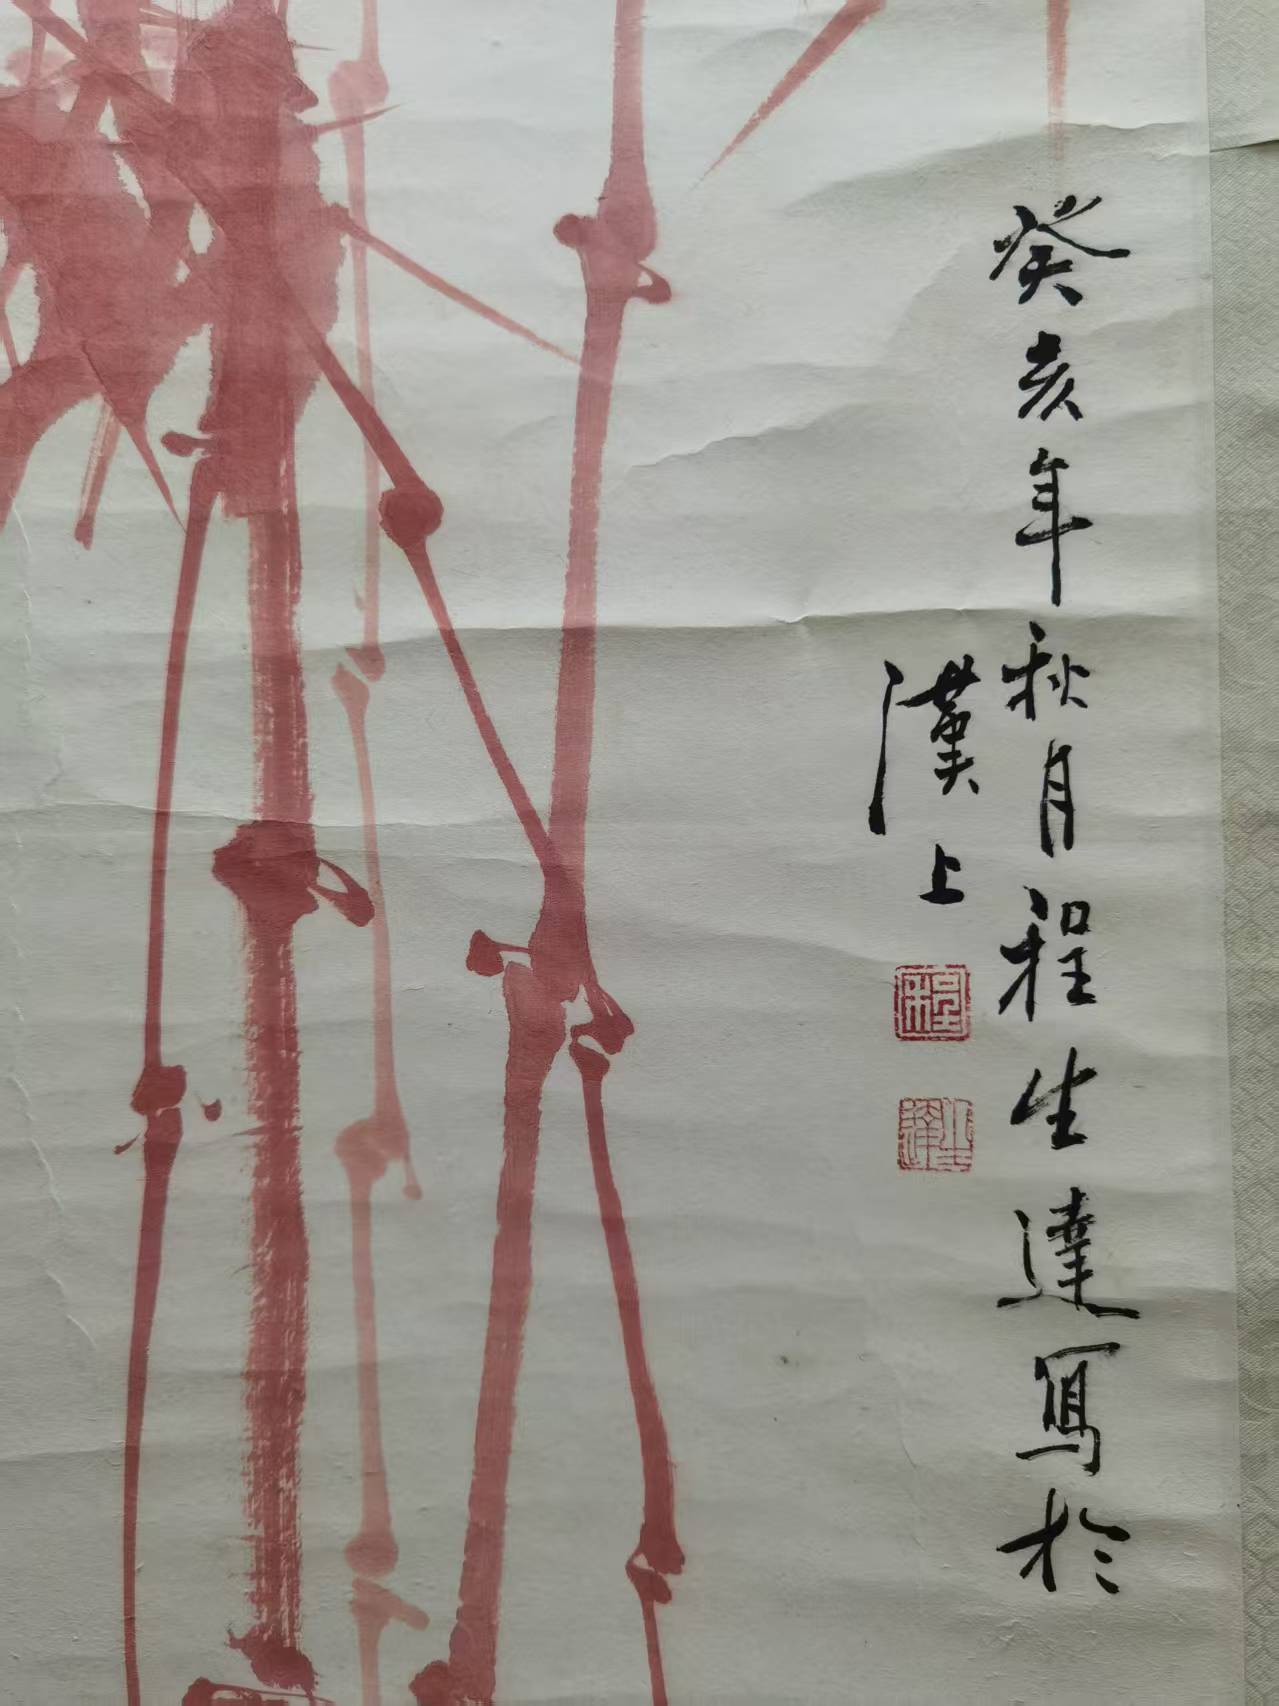 癸亥年秋月程生達寫於
漢上
程
生達